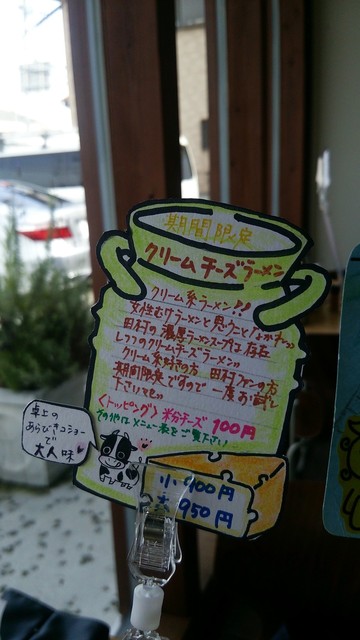 期間限定
クリームチーズラーメン
クリーム系ラーメン!!
女性むけラーメンと思うことなかれ〜
田村の濃厚ラーメンスープは存在
クリーム系好きの方 田村ファンの方
期間限定ですので 一度お試し
下さいませ〜
〈トッピング〉粉チーズ 100円
その他はメニュー表をご覧下さい
卓上の
あらびきコショー
で
大人味
小 900円
大 950円